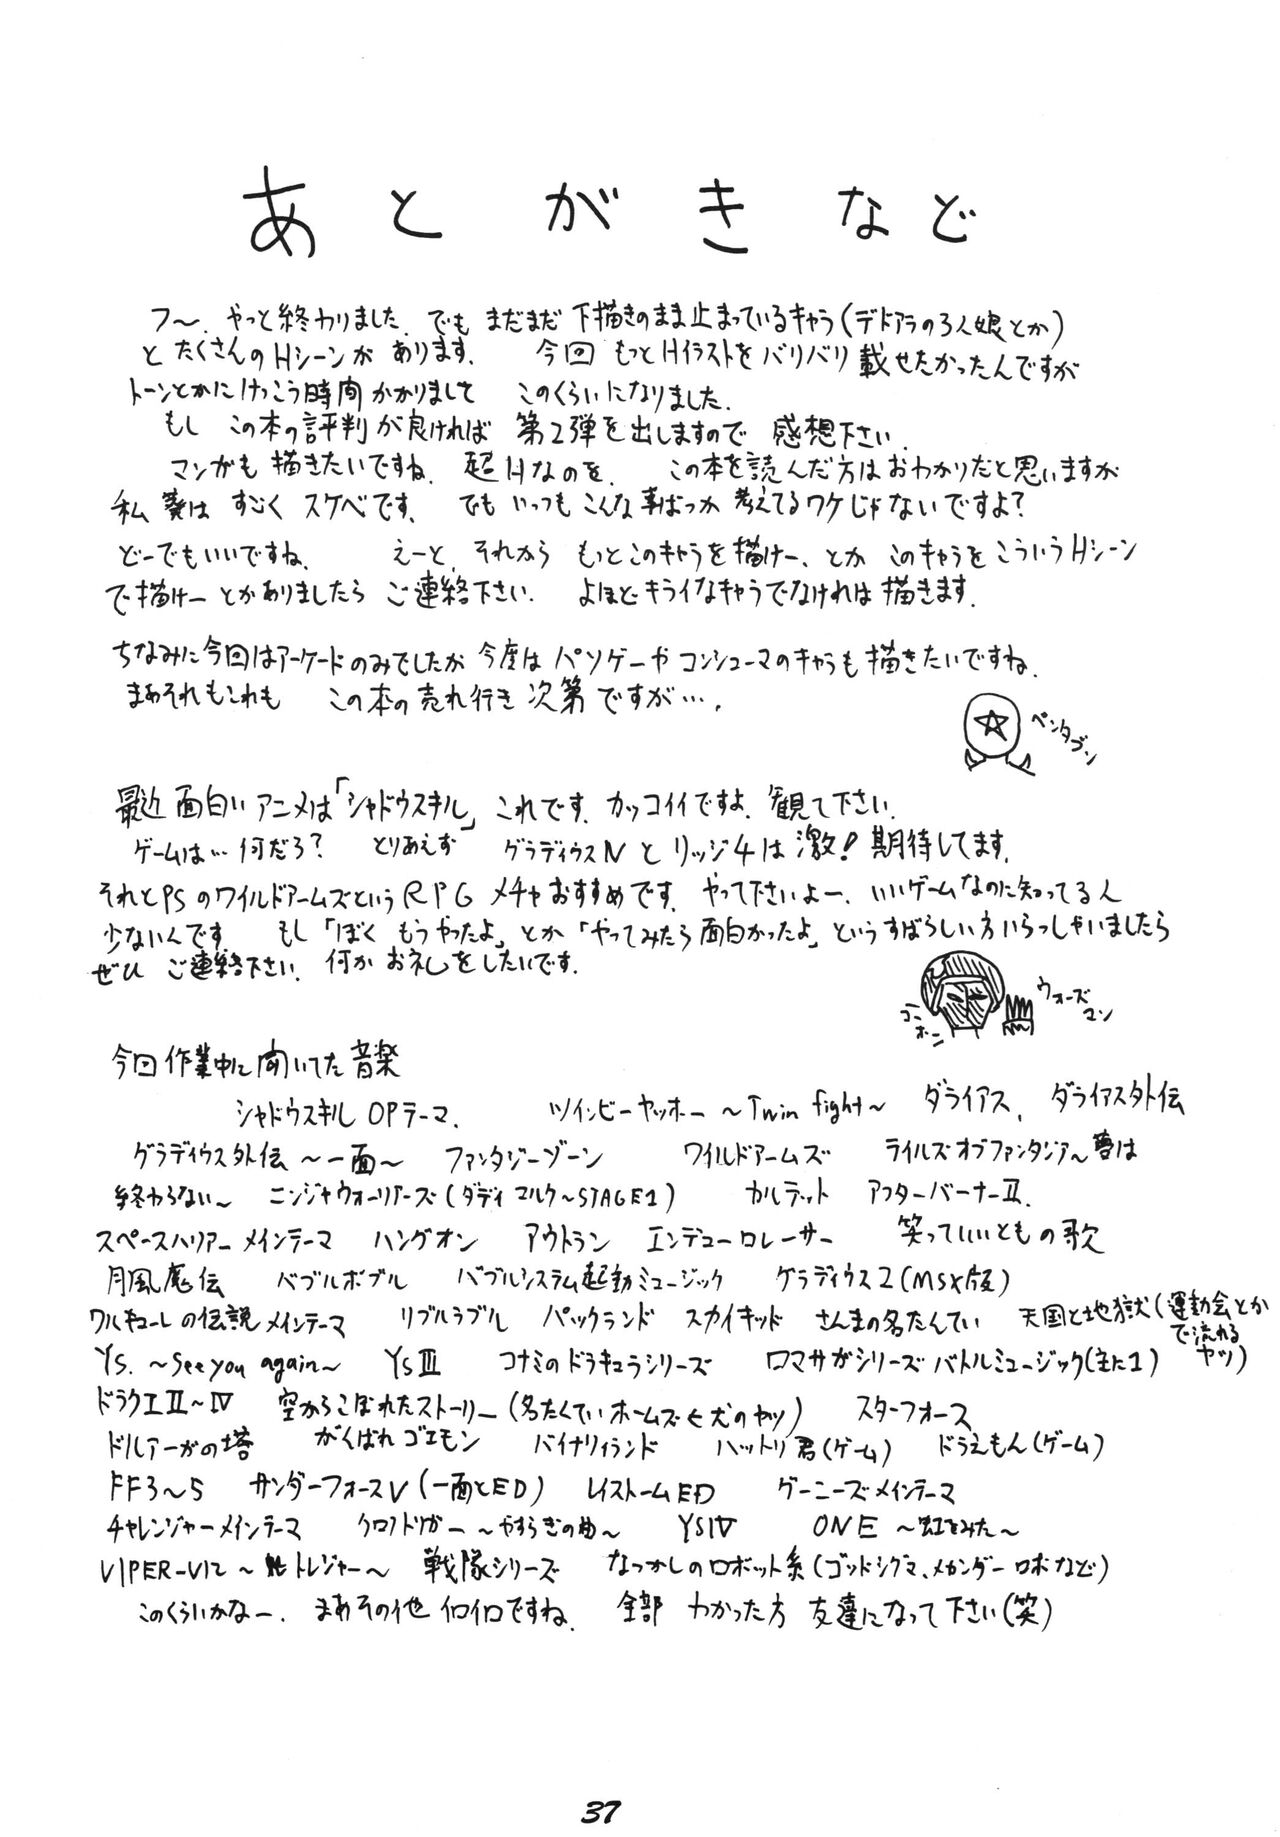 あとがきなど
フ〜、やっと終わりました。でも まだまだ 下描きのまま止まっているキャラ(デドアラの3人娘とか)
と たくさんのHシーンが あります。 今回 もっとHイラストをバリバリ載せたかったんですが
トーンとかにけっこう時間かかりまして このくらいになりました。
もし この本の評判が良ければ 第2弾を出しますので 感想下さい。
マンガも 描きたいですね、超Hなのを。 この本を読んだ方はおわかりだと思いますが
私 葵は すごく スケベです。 でも いっつも こんな事ばっか 考えてるワケじゃないですよ?
どーでもいいですね。 えーと、それから もっとこのキャラを描けー、とか このキャラを こういうHシーン
で描けー とかありましたら ご連絡下さい。 よほどキライなキャラでなければ描きます。
ちなみに今回はアーケードのみでしたが 今度は パソゲーや コンシューマのキャラも 描きたいですね。
まあそれもこれも この本の売れ行き次第ですが…。
ペンタゴン
最近 面白い アニメは「シャドウスキル」これです。カッコイイですよ。観て下さい。
ゲームは… 何だろ? とりあえず グラディウスIV と リッジ4は 激! 期待してます。
それとPSのワイルドアームズという RPG メチャおすすめです。やって下さいよー、いいゲームなのに知ってる人
少ないんです。 もし「ぼく もうやったよ」とか「やってみたら面白かったよ」というすばらしい方いらっしゃいましたら
ぜひ ご連絡下さい。 何かお礼をしたいです。
コーホー
ウォーズマン
今回 作業中に聞いてた音楽
シャドウスキル OPテーマ。 ツインビーヤッホー 〜Twin fight〜 ダライアス、 ダライアス外伝
グラディウス外伝 〜一面〜 ファンタジーゾーン ワイルドアームズ テイルズオブファンタジア〜夢は
終わらない〜 ニンジャウォーリアーズ(ダディ マルク〜STAGE1) カルテット アフターバーナーII.
スペースハリアー メインテーマ ハングオン アウトラン エンデューロレーサー 笑っていいともの歌
月風魔伝 バブルボブル バブルシステム起動ミュージック グラディウス2(MSX版)
ワルキューレの伝説メインテーマ リブルラブル パックランド スカイキッド さんまの名たんてい 天国と地獄(運動会とか
で流れる
ヤツ)
Ys. 〜See you again〜 YsIII コナミのドラキュラシリーズ ロマサガシリーズ バトルミュージック(主に1)
ドラクエ II〜IV 空からこぼれたストーリー(名たんていホームズ 犬のヤツ) スターフォース
ドルアーガの塔 がんばれゴエモン バイナリィランド ハットリ君(ゲーム) ドラえもん(ゲーム)
FF3〜5 サンダーフォースV(一面とED) レイストームED グーニーズメインテーマ
チャレンジャーメインテーマ クロノトリガー 〜やすらぎの曲〜 YSIV ONE 〜虹をみた〜
VIPER-V12 〜 トレジャー〜 戦隊シリーズ なつかしのロボット系(ゴッドシグマ、メカンダーロボなど)
このくらいかなー。 まあその他 イロイロですね。 全部 わかった方 友達になって下さい(笑)
37